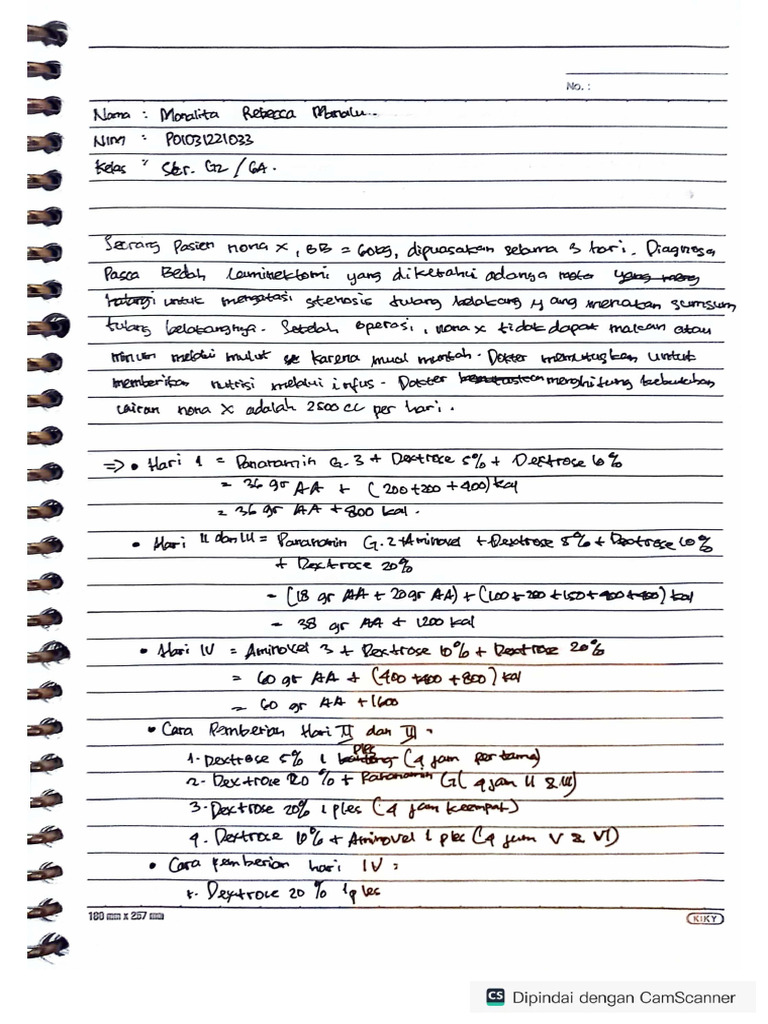 No. :
Nama : Monalita Rebecca Manalu..
Nim : P01031221033
Kelas : Str. Gz / 6A.
Seorang Pasien nona X, BB = 60kg, dipuasakan selama 3 hari. Diagnosa
Pasca Bedah Laminektomi yang diketahui adanya
untuk mengatasi stenosis tulang belakang yang menekan sumsum
tulang belakangnya. Setelah operasi, nona X tidak dapat makan atau
minum melalui mulut karena mual muntah. Dokter memutuskan untuk
memberikan nutrisi melalui infus. Dokter menghitung kebutuhan
cairan nona X adalah 2500 cc per hari.
=> • Hari 1 = Panaramin G. 3 + Dextrose 5% + Dextrose 10%
= 36 gr AA + (200+200+400) kal
= 36 gr AA + 800 kal.
• Hari II dan III = Paranamin G. 2 + Aminovel + Dextrose 5% + Dextrose 10%
+ Dextrose 20%
= (18 gr AA + 20gr AA) + (100+200+150+400+400) kal
= 38 gr AA + 1200 kal
• Hari IV = Aminovel 3 + Dextrose 10% + Dextrose 20%
= 60 gr AA + (400+400+800) kal
= 60 gr AA + 1600
• Cara Pemberian Hari II dan III :
1. Dextrose 5% 1 ples (4 jam pertama)
2. Dextrose 20 % + Paranamin G (4 jam II & III)
3. Dextrose 20% 1 ples (4 jam keempat)
4. Dextrose 10% + Aminovel 1 ples (4 jam V & VI)
• Cara pemberian hari IV :
1. Dextrose 20 % 1 ples
180 mm x 257 mm
KIKY
CS Dipindai dengan CamScanner